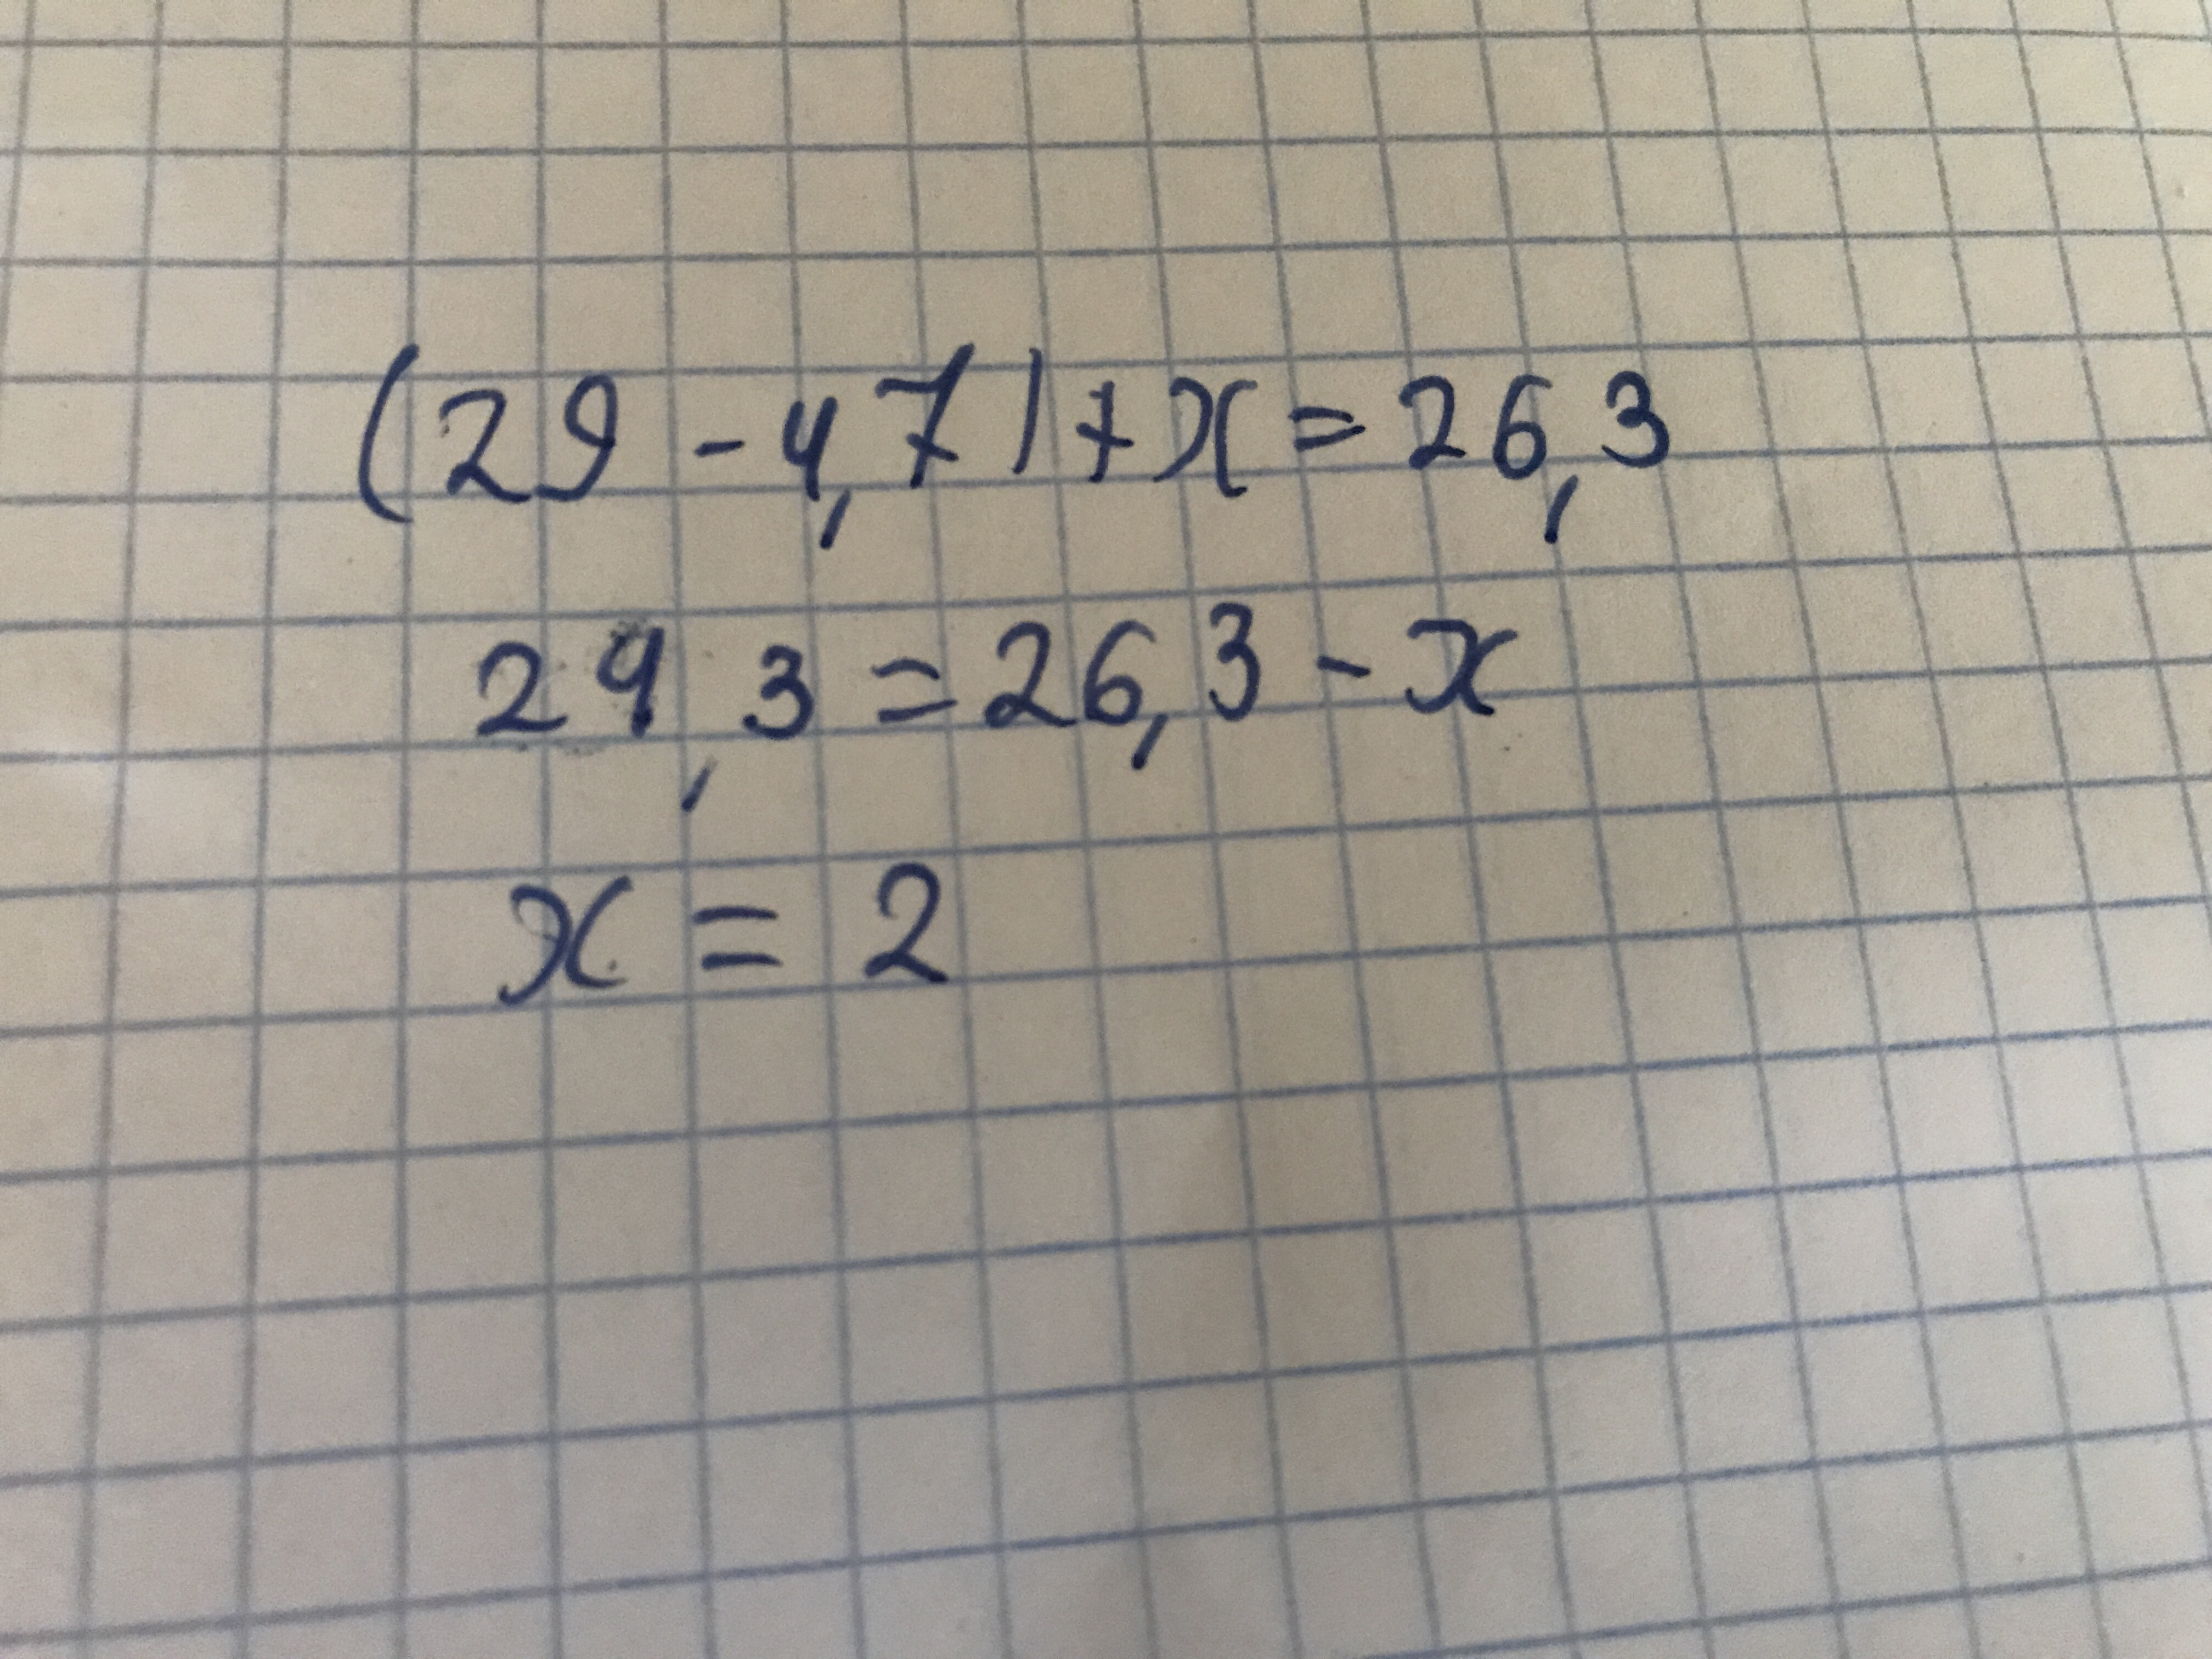 (29 - 4,7) + x = 26,3
24,3 = 26,3 - x
x = 2